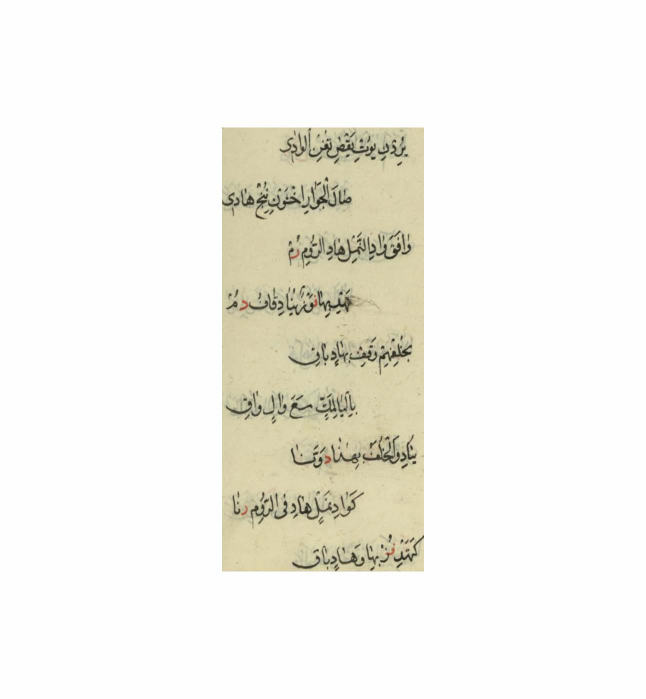 يُرِدْنِ يُوتِ يَقْضِ تُغْنِ اَلْوَادِى
صَالِ الْجَوَارِ اخْشَوْنِ نُنْجِ هَادِى
وَافَقَ وَادِ النَّمْلِ هَادِ الرُّومِ رُمْ
تَهْدِ بِهَا فَوْزٌ يُنَادِ قَافُ دُمْ
بِخُلْفِهِمْ وَقِفْ بِهَادِ بَاقِ
بِالْيَا لِمَكٍّ مَعَ وَالٍ وَاقِ
يُنَادِ وَالْخُلْفُ بِهٰذَا
كَوَادِ نَمْلٍ هَادِ فِى الرُّومِ رَنَا
كَتَهْدِ فُزْ بِهَا وَهَادِ بَاقِ